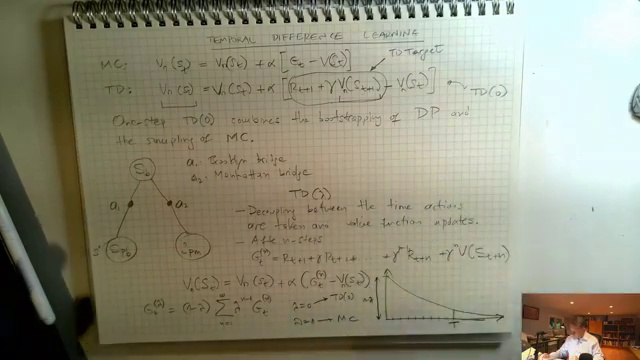 TEMPORAL DIFFERENCE LEARNING
MC: Vπ(St) = Vπ(St) + α [Gt − V(St)]
TD Target
TD: Vπ(St) = Vπ(St) + α [Rt+1 + γ Vπ(St+1) − Vπ(St)]
TD(0)
One step TD(0) combines the bootstrapping of DP and
the sampling of MC.
Sb
a1: Brooklyn bridge
a2: Manhattan bridge
a1
a2
TD(λ)
- Decoupling between the time actions
are taken and value function updates.
- After n-steps
S'
Gt(n) = Rt+1 + γ Rt+2 + γ Rt+n + γn V(St+n)
Vπ(St) = Vπ(St) + α (Gt(n) − Vπ(St))
Gt(λ) = (1-λ) Σ n=1 ∞ λn-1 Gt(n)
λ=0 → TD(0)
λ=1 → MC
1-λ
T